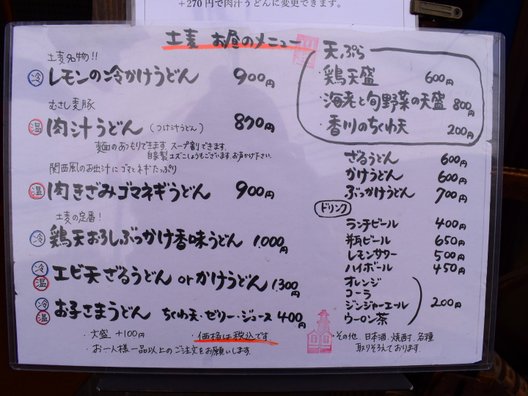 +270円で肉汁うどんに変更できます。
土麦 お昼のメニュー
土麦名物!!
冷 レモンの冷かけうどん 900円
むさし麦豚
温 肉汁うどん (つけ汁うどん) 870円
麺のあつもりできます。スープ割りできます。
自家製ユズこしょうもございます。お声かけ下さい。
関西風のお出汁にゴマとネギたっぷり
温 肉きざみゴマネギうどん 900円
土麦の定番!
冷 鶏天おろしぶっかけ香味うどん 1,000円
冷 温 エビ天ざるうどん orかけうどん 1,300円
冷 温 お子さまうどん ちくわ天・ゼリー・ジュース 400円
・大盛 +100円 ・価格は税込です
・お一人様一品以上のご注文をお願いします。
天ぷら
・鶏天盛 600円
・海老と旬野菜の天盛 800円
・香川のちくわ天 200円
ざるうどん 600円
かけうどん 600円
ぶっかけうどん 700円
ドリンク
ランチビール 400円
瓶ビール 650円
レモンサワー 500円
ハイボール 450円
オレンジ
コーラ
ジンジャーエール
ウーロン茶
200円
・その他 日本酒、焼酎、各種
取りそろえております